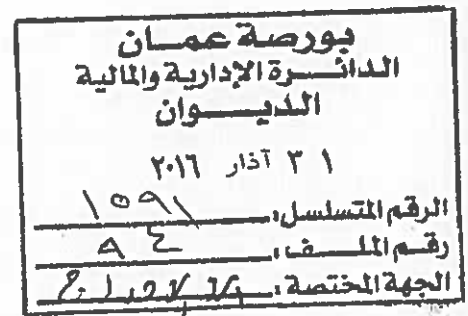 بورصة عمان
الدائرة الإدارية والمالية
الديوان
٣١ آذار ٢٠١٦
الرقم المتسلسل: ١٥٩١
رقم الملف:
الجهة المختصة: